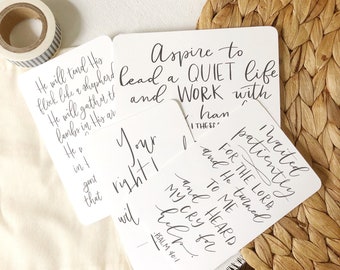 He will tend His
flock like a shepherd
He will gather the
lambs in His
He
in
and
that
Aspire to
lead a QUIET life
and WORK with
han
1 THESS
Your
right
will
I waited
patiently
FOR THE LORD
and He turned
TO ME
and HEARD
MY CRY for
help
PSALM 40:1